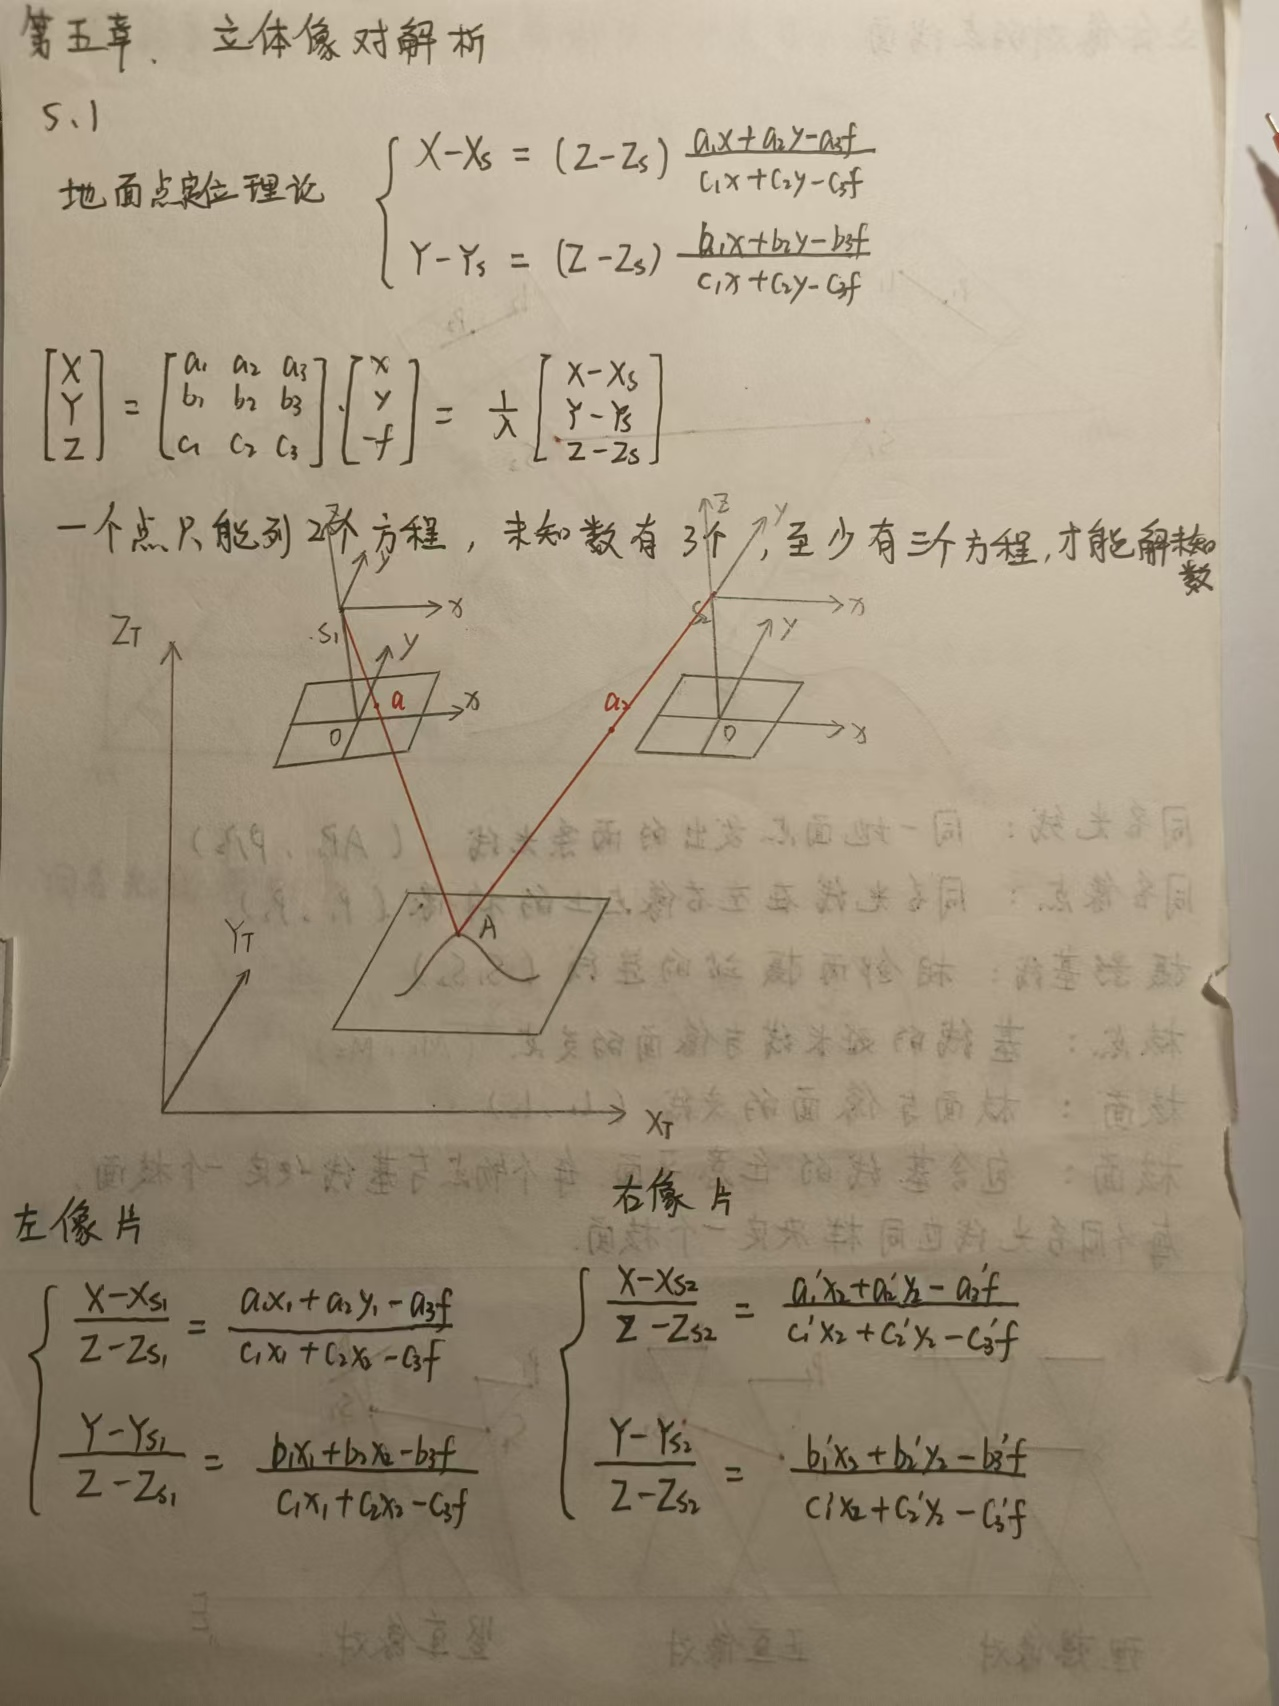 第五章. 立体像对解析
5.1
地面点定位理论
X-Xs = (Z-Zs) (a₁x+a₂y-a₃f)/(c₁x+c₂y-c₃f)
Y-Ys = (Z-Zs) (b₁x+b₂y-b₃f)/(c₁x+c₂y-c₃f)
[X Y Z] = [a₁ a₂ a₃ b₁ b₂ b₃ c₁ c₂ c₃]·[x y -f] = 1/λ [X-Xs Y-Ys Z-Zs]
一个点只能列2个方程, 未知数有3个, 至少有三个方程, 才能解未知数
Z y x S₁
Z y x S₂
Z_T
y x a O
a₂ y x O
A
Y_T
X_T
左像片
右像片
(X-Xs₁)/(Z-Zs₁) = (a₁x₁+a₂y₁-a₃f)/(c₁x₁+c₂x₂-c₃f)
(X-Xs₂)/(Z-Zs₂) = (a₁'x₂+a₂'y₂-a₃'f)/(c₁'x₂+c₂'y₂-c₃'f)
(Y-Ys₁)/(Z-Zs₁) = (b₁x₁+b₂x₂-b₃f)/(c₁x₁+c₂x₂-c₃f)
(Y-Ys₂)/(Z-Zs₂) = (b₁'x₂+b₂'y₂-b₃'f)/(c₁'x₂+c₂'y₂-c₃'f)